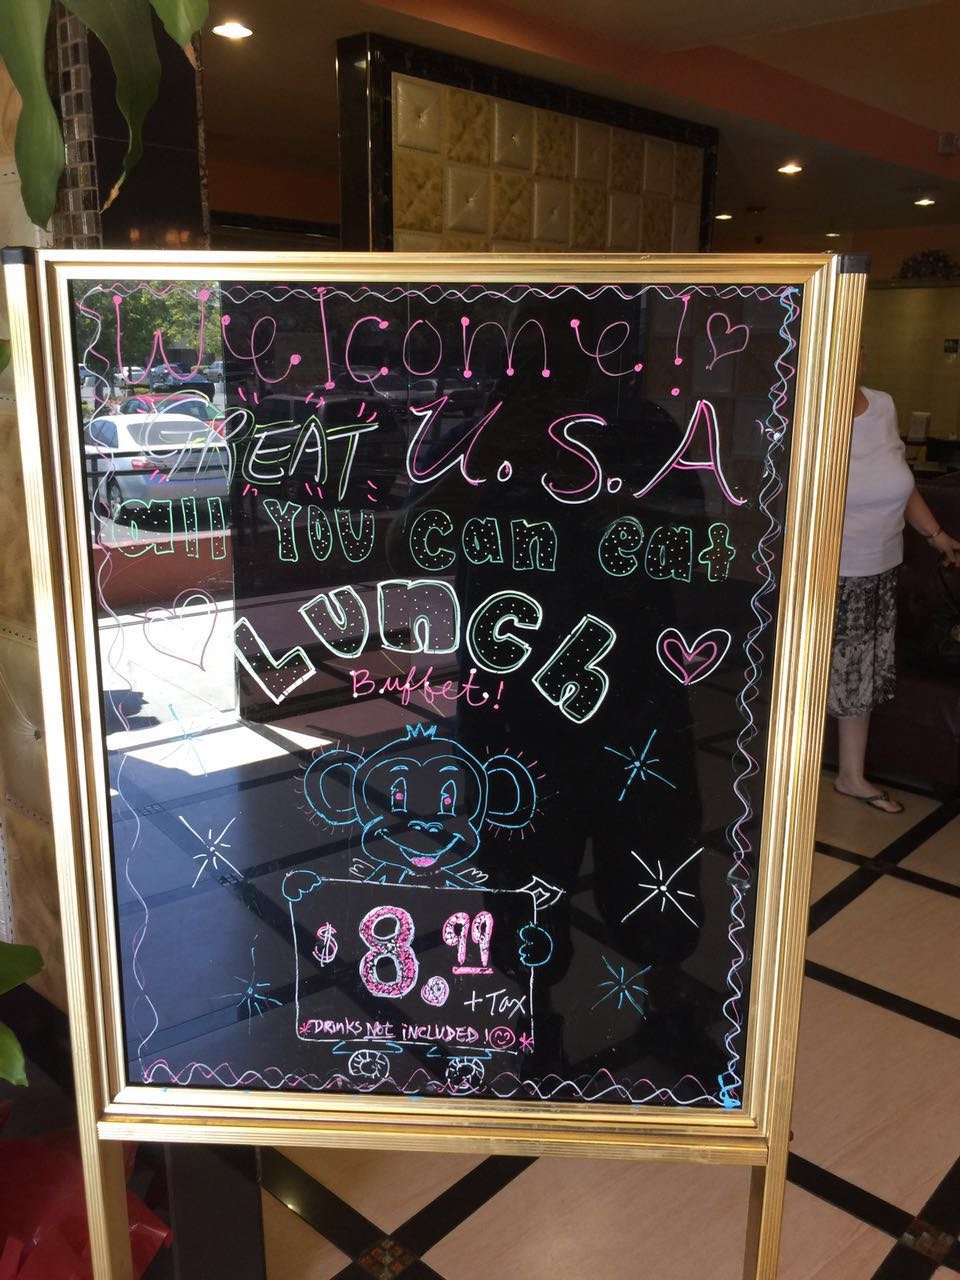 Welcome!
GREAT U.S.A
all YOU can eat
LUNCH
Buffet!
$8.99
+ Tax
*DRINKS NOT iNCLUDED!*